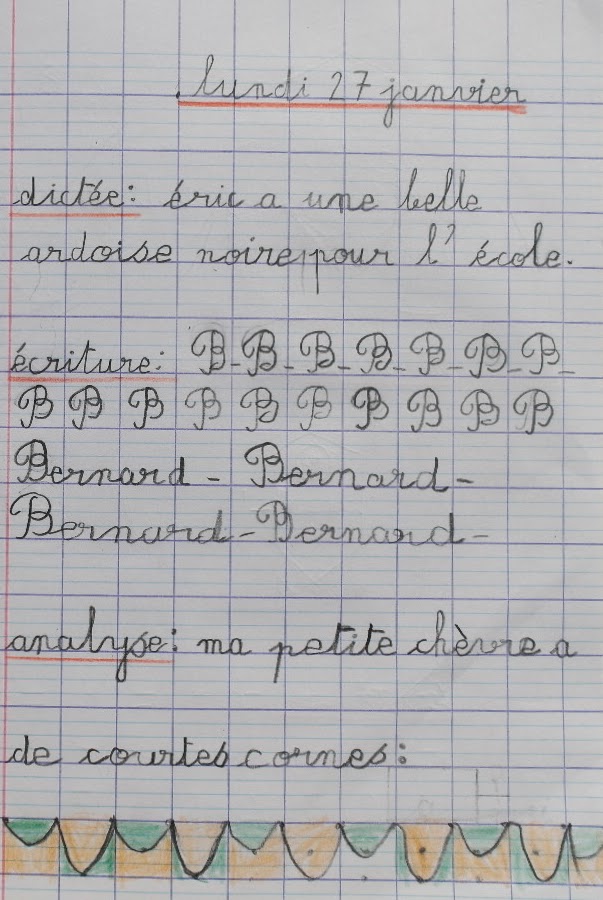 lundi 27 janvier
dictée: éric a une belle
ardoise noire pour l'école.
écriture: B-B-B-B-B-B-B-
B B B B B B B B B B
Bernard - Bernard-
Bernard-Bernard-
analyse: ma petite chèvre a
de courtes cornes: